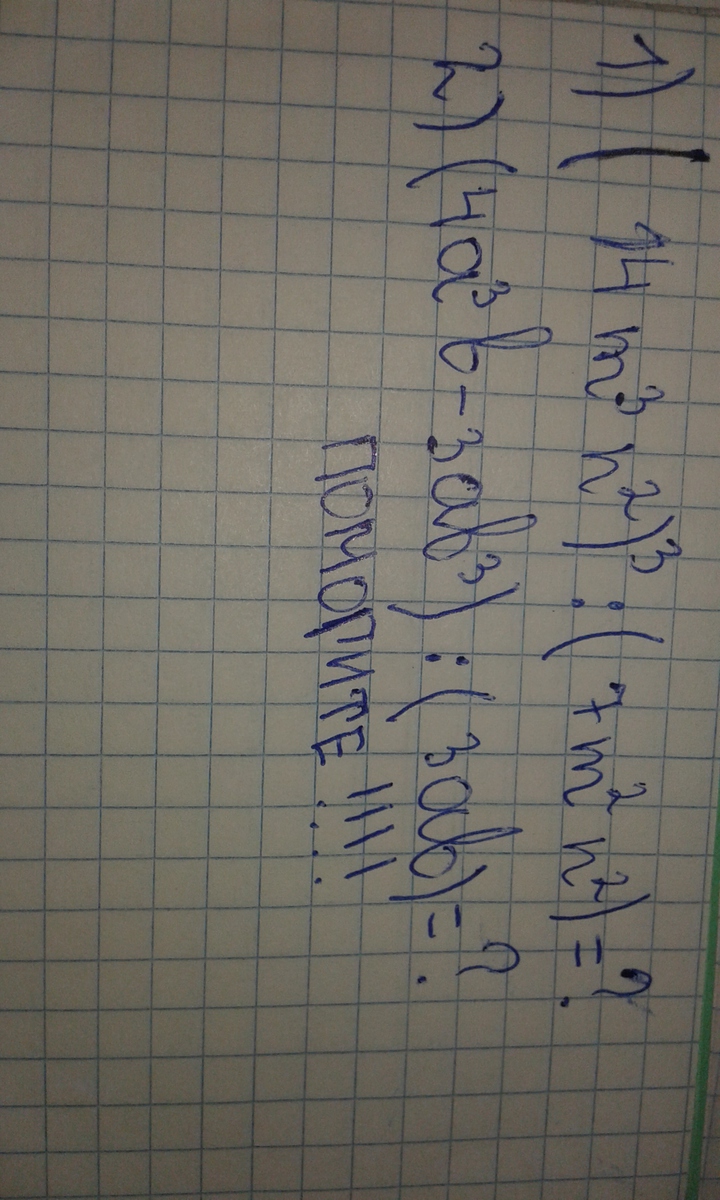 1) (14 m³ n²)³ : (7m² n²) = ?
2) (4a³b - 3ab³) : (3ab) = ?
ПОМОГИТЕ !!!!